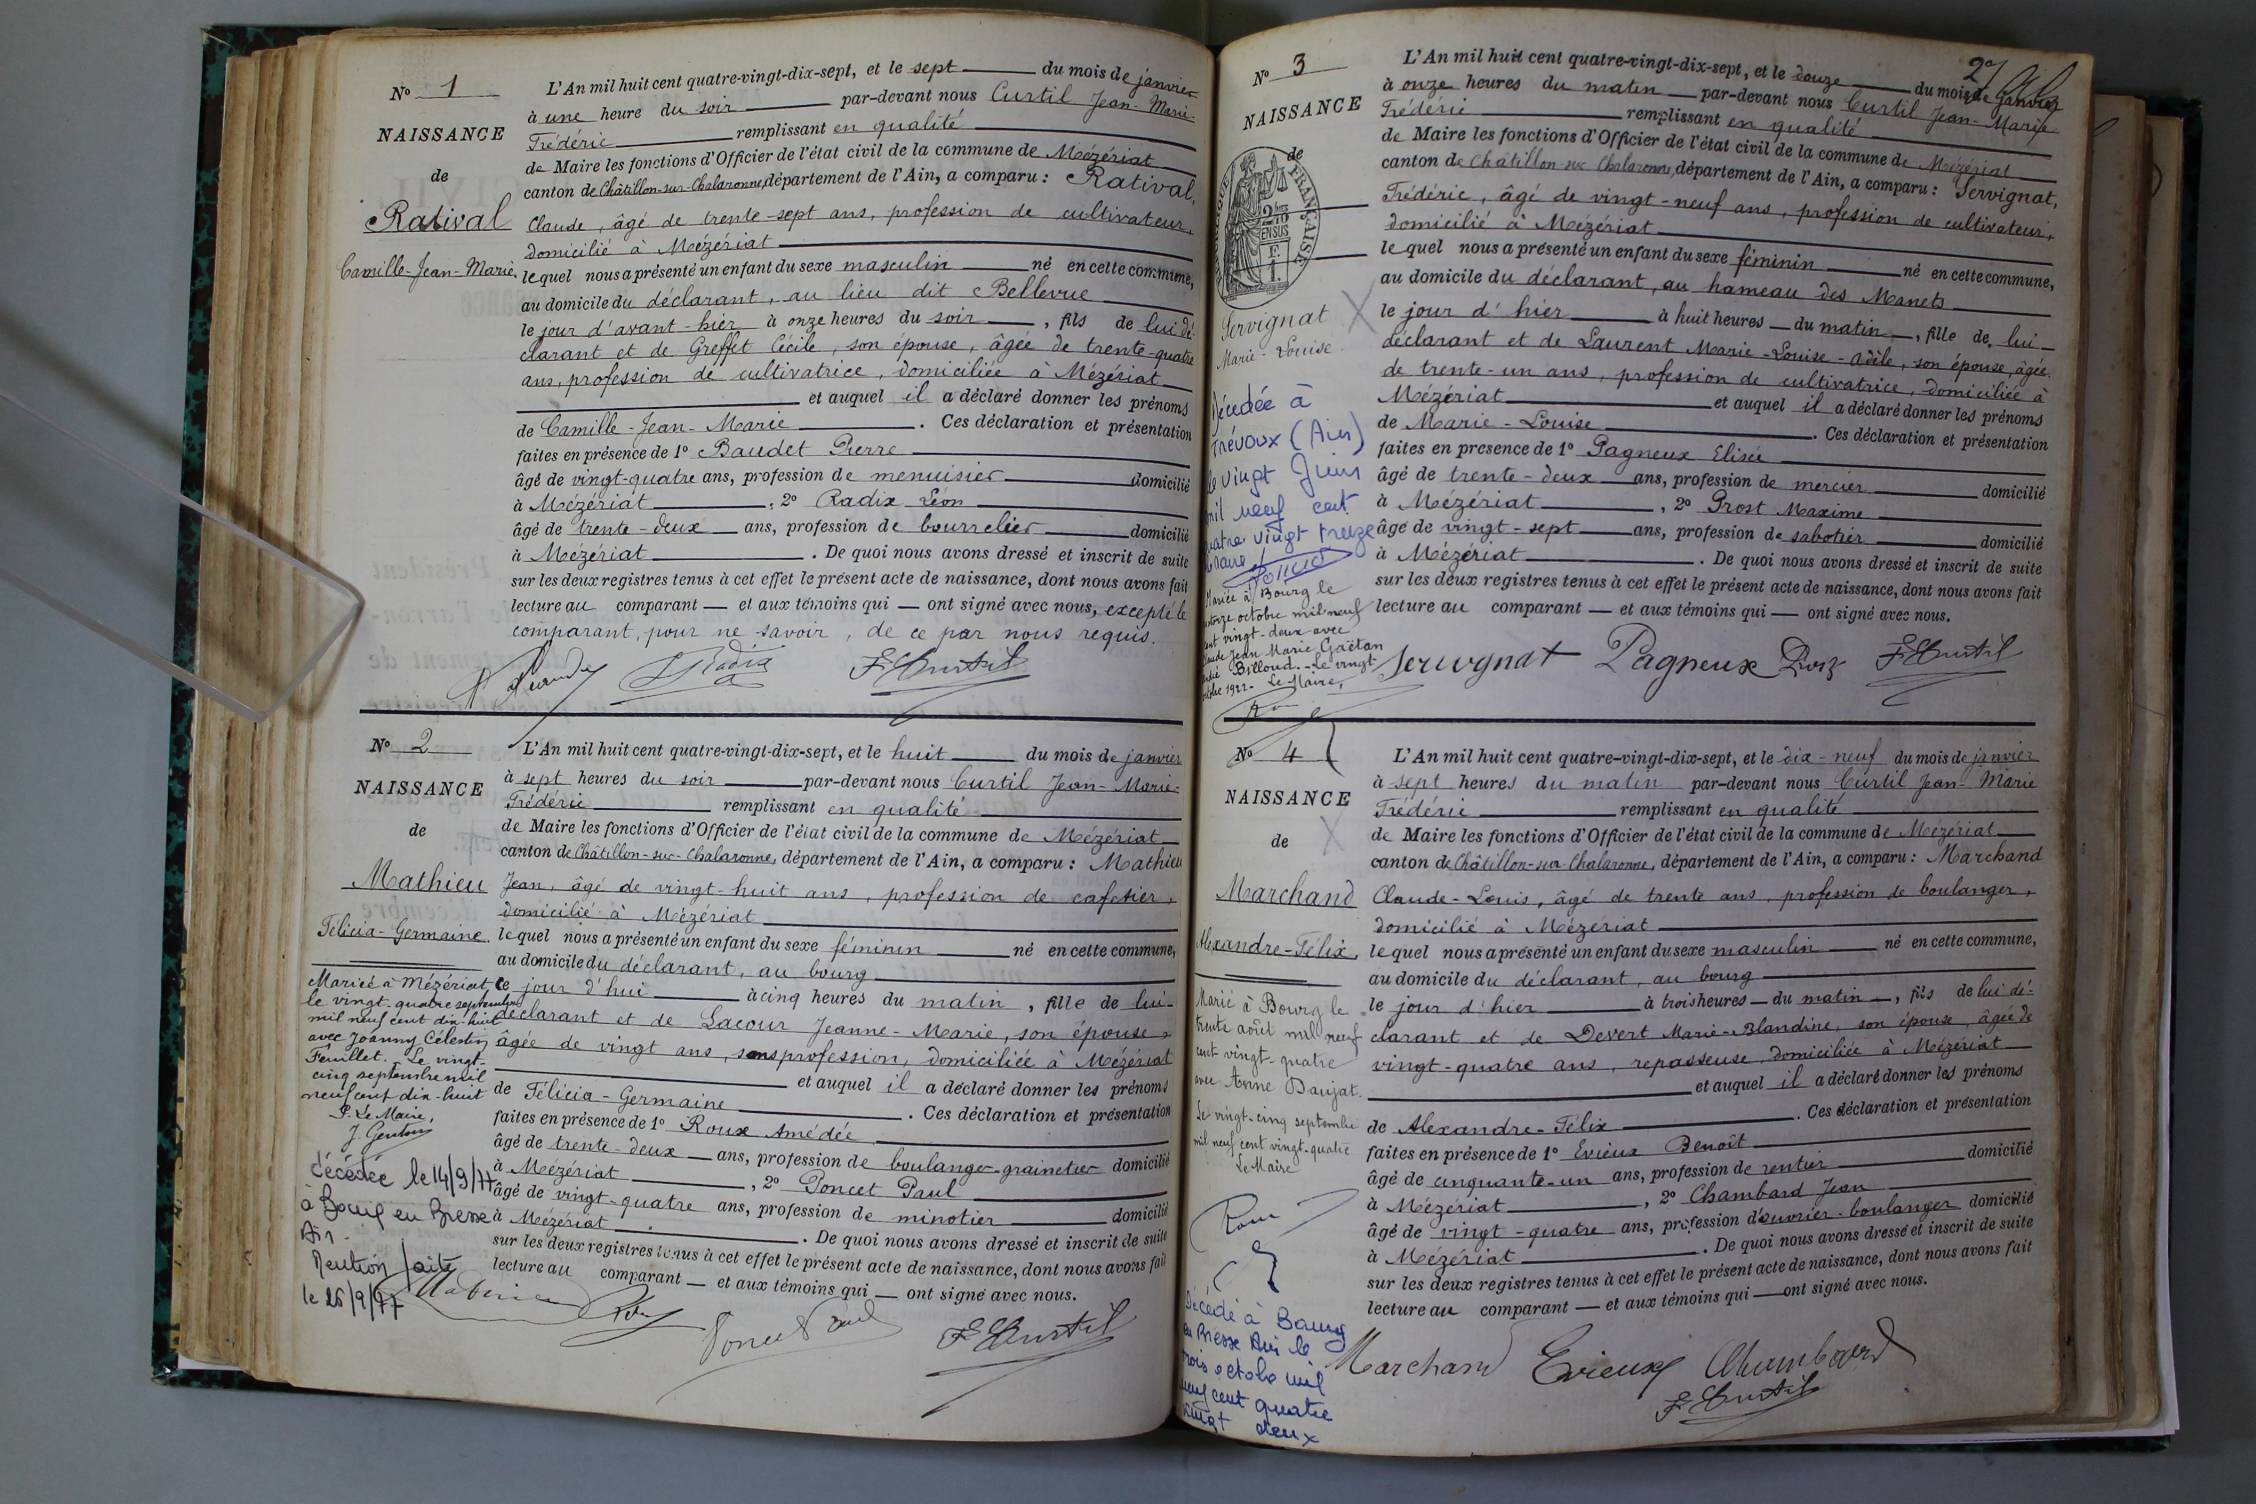 Nº 1
NAISSANCE
de
Ratival
Camille-Jean-Marie.
L'An mil huit cent quatre-vingt-dix-sept, et le sept du mois de janvier
à une heure du soir par-devant nous Curtil Jean-Marie-
Frédéric remplissant en qualité
de Maire les fonctions d'Officier de l'état civil de la commune de Mézériat
canton de Châtillon-sur-Chalaronne, département de l'Ain, a comparu : Ratival,
Claude, âgé de trente-sept ans, profession de cultivateur,
domicilié à Mézériat
lequel nous a présenté un enfant du sexe masculin né en cette commune,
au domicile du déclarant, au lieu dit Bellevue
le jour d'avant-hier à onze heures du soir, fils de lui dé-
clarant et de Greffet Cécile, son épouse, âgée de trente-quatre
ans, profession de cultivatrice, domiciliée à Mézériat
et auquel il a déclaré donner les prénoms
de Camille-Jean-Marie. Ces déclaration et présentation
faites en présence de 1º Baudet Pierre
âgé de vingt-quatre ans, profession de menuisier domicilié
à Mézériat, 2º Radix Léon
âgé de trente-deux ans, profession de bourrelier domicilié
à Mézériat. De quoi nous avons dressé et inscrit de suite
sur les deux registres tenus à cet effet le présent acte de naissance, dont nous avons fait
lecture au comparant — et aux témoins qui — ont signé avec nous, excepté le
comparant, pour ne savoir, de ce par nous requis.
Radix F Curtil
Nº 2
NAISSANCE
de
Mathieu
Félicia-Germaine.
Mariée à Mézériat
le vingt-quatre septembre
mil neuf cent dix-huit
avec Joanny Célestin
Feuillet. - Le vingt-
cinq septembre mil
neuf cent dix-huit
P. Le Maire,
décédée le 14/9/77
à Bourg en Bresse
Ain.
Mention faite
le 26/9/77
L'An mil huit cent quatre-vingt-dix-sept, et le huit du mois de janvier
à sept heures du soir par-devant nous Curtil Jean-Marie-
Frédéric remplissant en qualité
de Maire les fonctions d'Officier de l'état civil de la commune de Mézériat
canton de Châtillon-sur-Chalaronne, département de l'Ain, a comparu : Mathieu
Jean, âgé de vingt-huit ans, profession de cafetier,
domicilié à Mézériat
lequel nous a présenté un enfant du sexe féminin né en cette commune,
au domicile du déclarant, au bourg
le jour d'hui à cinq heures du matin, fille de lui-
déclarant et de Lacour Jeanne-Marie, son épouse,
âgée de vingt ans, sans profession, domiciliée à Mézériat
et auquel il a déclaré donner les prénoms
de Félicia-Germaine. Ces déclaration et présentation
faites en présence de 1º Roux Amédée
âgé de trente-deux ans, profession de boulanger-grainetier domicilié
à Mézériat, 2º Poncet Paul
âgé de vingt-quatre ans, profession de minotier domicilié
à Mézériat. De quoi nous avons dressé et inscrit de suite
sur les deux registres tenus à cet effet le présent acte de naissance, dont nous avons fait
lecture au comparant — et aux témoins qui — ont signé avec nous.
Poncet Paul F Curtil
2
Nº 3
NAISSANCE
de
FRANÇAISE
Servignat
Marie-Louise.
Décédée à
Trévoux (Ain)
le vingt Juin
mil neuf cent
quatre vingt treize
Mariée à Bourg le
quatorze octobre mil neuf
cent vingt-deux avec
Claude Jean Marie Gaëtan
Billoud. - Le vingt
octobre 1922. Le Maire,
L'An mil huit cent quatre-vingt-dix-sept, et le douze du mois de janvier
à onze heures du matin par-devant nous Curtil Jean-Marie
Frédéric remplissant en qualité
de Maire les fonctions d'Officier de l'état civil de la commune de Mézériat
canton de Châtillon-sur-Chalaronne, département de l'Ain, a comparu : Servignat,
Frédéric, âgé de vingt-neuf ans, profession de cultivateur,
domicilié à Mézériat
lequel nous a présenté un enfant du sexe féminin né en cette commune,
au domicile du déclarant, au hameau des Manets
le jour d'hier à huit heures du matin, fille de lui-
déclarant et de Laurent Marie-Louise-Adèle, son épouse, âgée
de trente-un ans, profession de cultivatrice, domiciliée à
Mézériat et auquel il a déclaré donner les prénoms
de Marie-Louise. Ces déclaration et présentation
faites en présence de 1º Pagneux Elisée
âgé de trente-deux ans, profession de mercier domicilié
à Mézériat, 2º Prost Maxime
âgé de vingt-sept ans, profession de sabotier domicilié
à Mézériat. De quoi nous avons dressé et inscrit de suite
sur les deux registres tenus à cet effet le présent acte de naissance, dont nous avons fait
lecture au comparant — et aux témoins qui — ont signé avec nous.
Servignat Pagneux F Curtil
Nº 4
NAISSANCE
de
Marchand
Alexandre-Félix.
Marié à Bourg le
trente août mil neuf
cent vingt-quatre
avec Anne Daujat.
Le vingt-cinq septembre
mil neuf cent vingt-quatre
Le Maire
Décédé à Bourg
en Bresse Ain le
trois octobre mil
neuf cent quatre
vingt deux
L'An mil huit cent quatre-vingt-dix-sept, et le dix-neuf du mois de janvier
à sept heures du matin par-devant nous Curtil Jean-Marie
Frédéric remplissant en qualité
de Maire les fonctions d'Officier de l'état civil de la commune de Mézériat
canton de Châtillon-sur-Chalaronne, département de l'Ain, a comparu : Marchand
Claude-Louis, âgé de trente ans, profession de boulanger,
domicilié à Mézériat
lequel nous a présenté un enfant du sexe masculin né en cette commune,
au domicile du déclarant, au bourg
le jour d'hier à trois heures du matin, fils de lui dé-
clarant et de Devert Marie-Blandine, son épouse, âgée de
vingt-quatre ans, repasseuse, domiciliée à Mézériat
et auquel il a déclaré donner les prénoms
de Alexandre-Félix. Ces déclaration et présentation
faites en présence de 1º Evieux Benoît
âgé de cinquante-un ans, profession de rentier domicilié
à Mézériat, 2º Chambard Jean
âgé de vingt-quatre ans, profession d'ouvrier-boulanger domicilié
à Mézériat. De quoi nous avons dressé et inscrit de suite
sur les deux registres tenus à cet effet le présent acte de naissance, dont nous avons fait
lecture au comparant — et aux témoins qui — ont signé avec nous.
Marchand Evieux Chambard
F Curtil